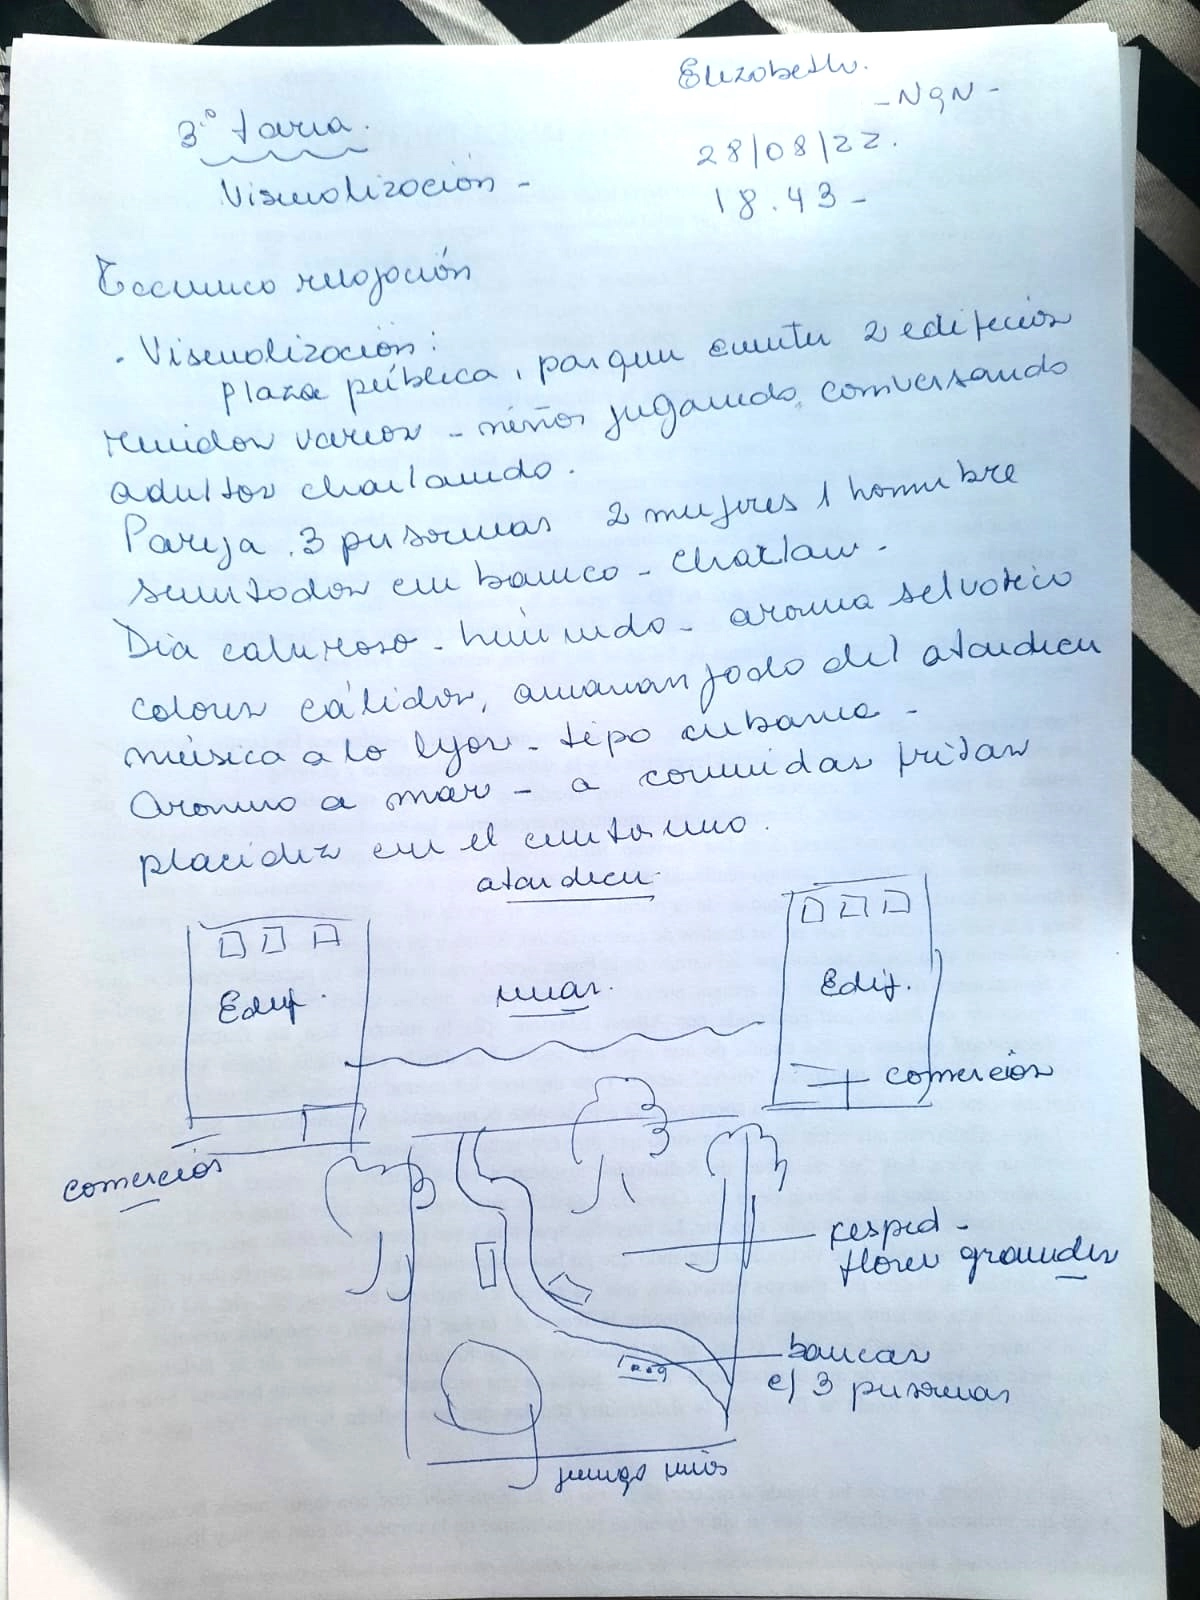 Elizabeth.
- NGN -
3.° tarea.
28/08/22.
Visualización -
18.43 -
Técnica relajación
. Visualización:
plaza pública, parque entre 2 edificios
ruidos varios - niños jugando, conversando
adultos charlando.
Pareja . 3 personas 2 mujeres 1 hombre
sentados en banco - charlan -
Dia caluroso - húmedo - aroma selvatico
colores cálidos, anaranjado del atardecer
música a lo lejos - tipo cubana -
Aroma a mar - a comidas fritas
placidez en el entorno.
atardecer
Edif.
mar.
Edif.
comercios
comercios
cesped -
flores grandes
bancas
c/ 3 personas
juego niños